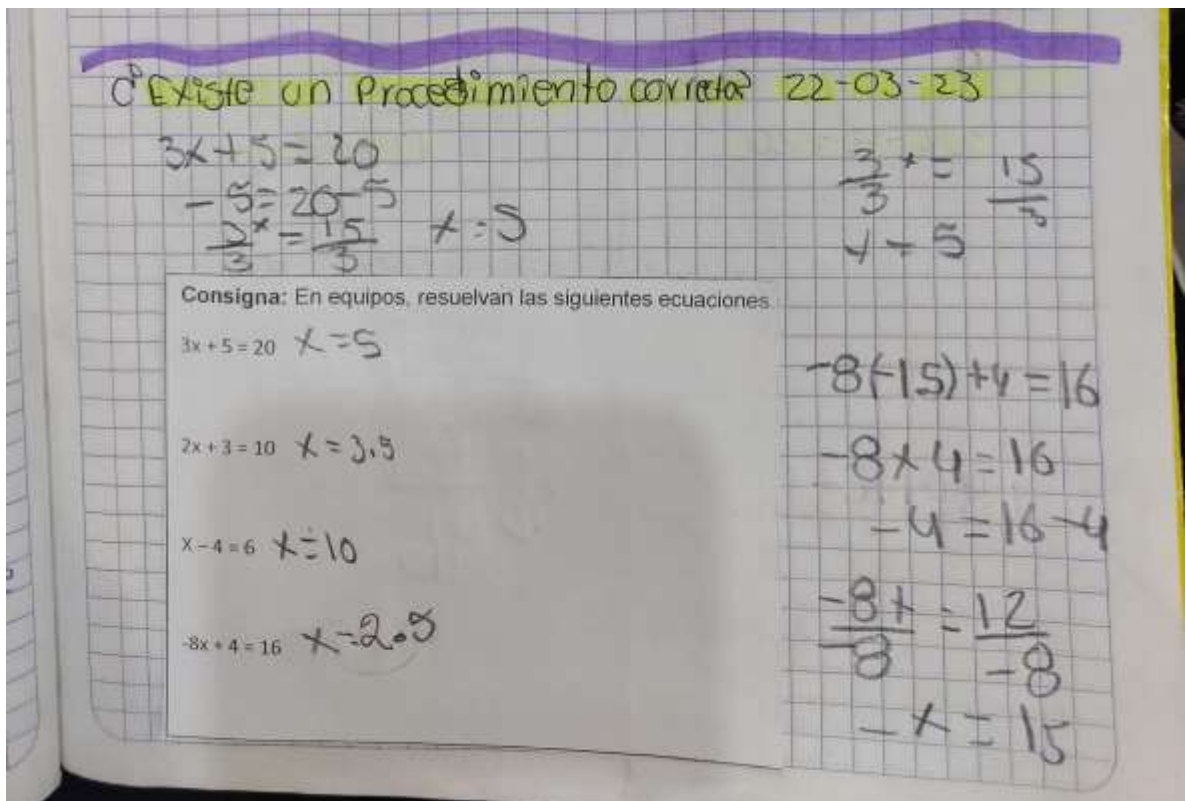 ¿Existe un Procedimiento correcto? 22-03-23
3x+5=20
-5=20-5
3x/3 = 15/3 x=5
3/3 x = 15/
x=5
Consigna: En equipos, resuelvan las siguientes ecuaciones
3x + 5 = 20 x=5
2x + 3 = 10 x=3.5
X – 4 = 6 x=10
-8x + 4 = 16 x=2.5
-8(-15)+4=16
-8x4=16
-4=16-4
-8x/-8 = 12/-8
-x=15